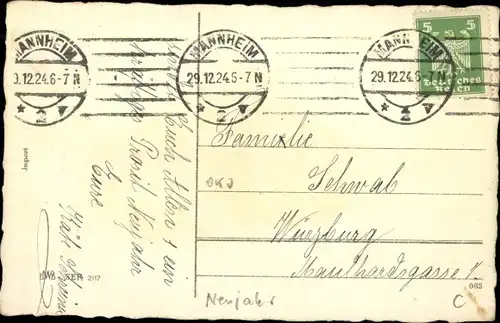 MANNHEIM
29.12.24.6-7 N
* 2 v
MANNHEIM
29.12.24.6-7 N
* 2 v
MANNHEIM
29.12.24.6-7 N
* 2 v
5 5
Deutsches
Reich
Euch Allen + ein
Prosit Neujahr
Eure
Import
207
Familie
Schwab
Würzburg
Maulhardsgasse
OKD
Neujahr
063
C